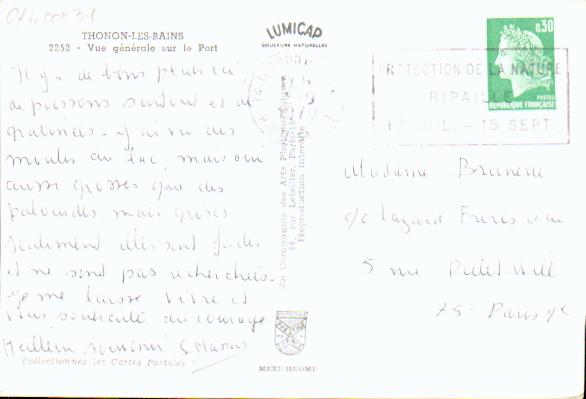 01400039
THONON-LES-BAINS
2252 - Vue générale sur le Port
LUMICAP
COULEURS NATURELLES
Il y a de bons plats ici
de poissons surtout et de
gratinées - j'ai vu des
moules au lac, mais oui
aussi grosses que des
palourdes, mais grises
seulement elles sont fades
et ne sont pas recherchées -
Je me laisse vivre et
vous souhaite du courage
Meilleur souvenir
Collectionnez les Cartes Postales !
Compagnie des Arts Photomécaniques
44, rue Letellier, Paris-15e
Reproduction interdite
MEXICHROME
PROTECTION DE LA NATURE
RIPAILLE
15 JUIL. - 15 SEPT.
0,30
POSTES
REPUBLIQUE FRANÇAISE
Madame Bruneau
c/o Lazard Frères
5 rue Pillet-Will
75 - Paris 9e